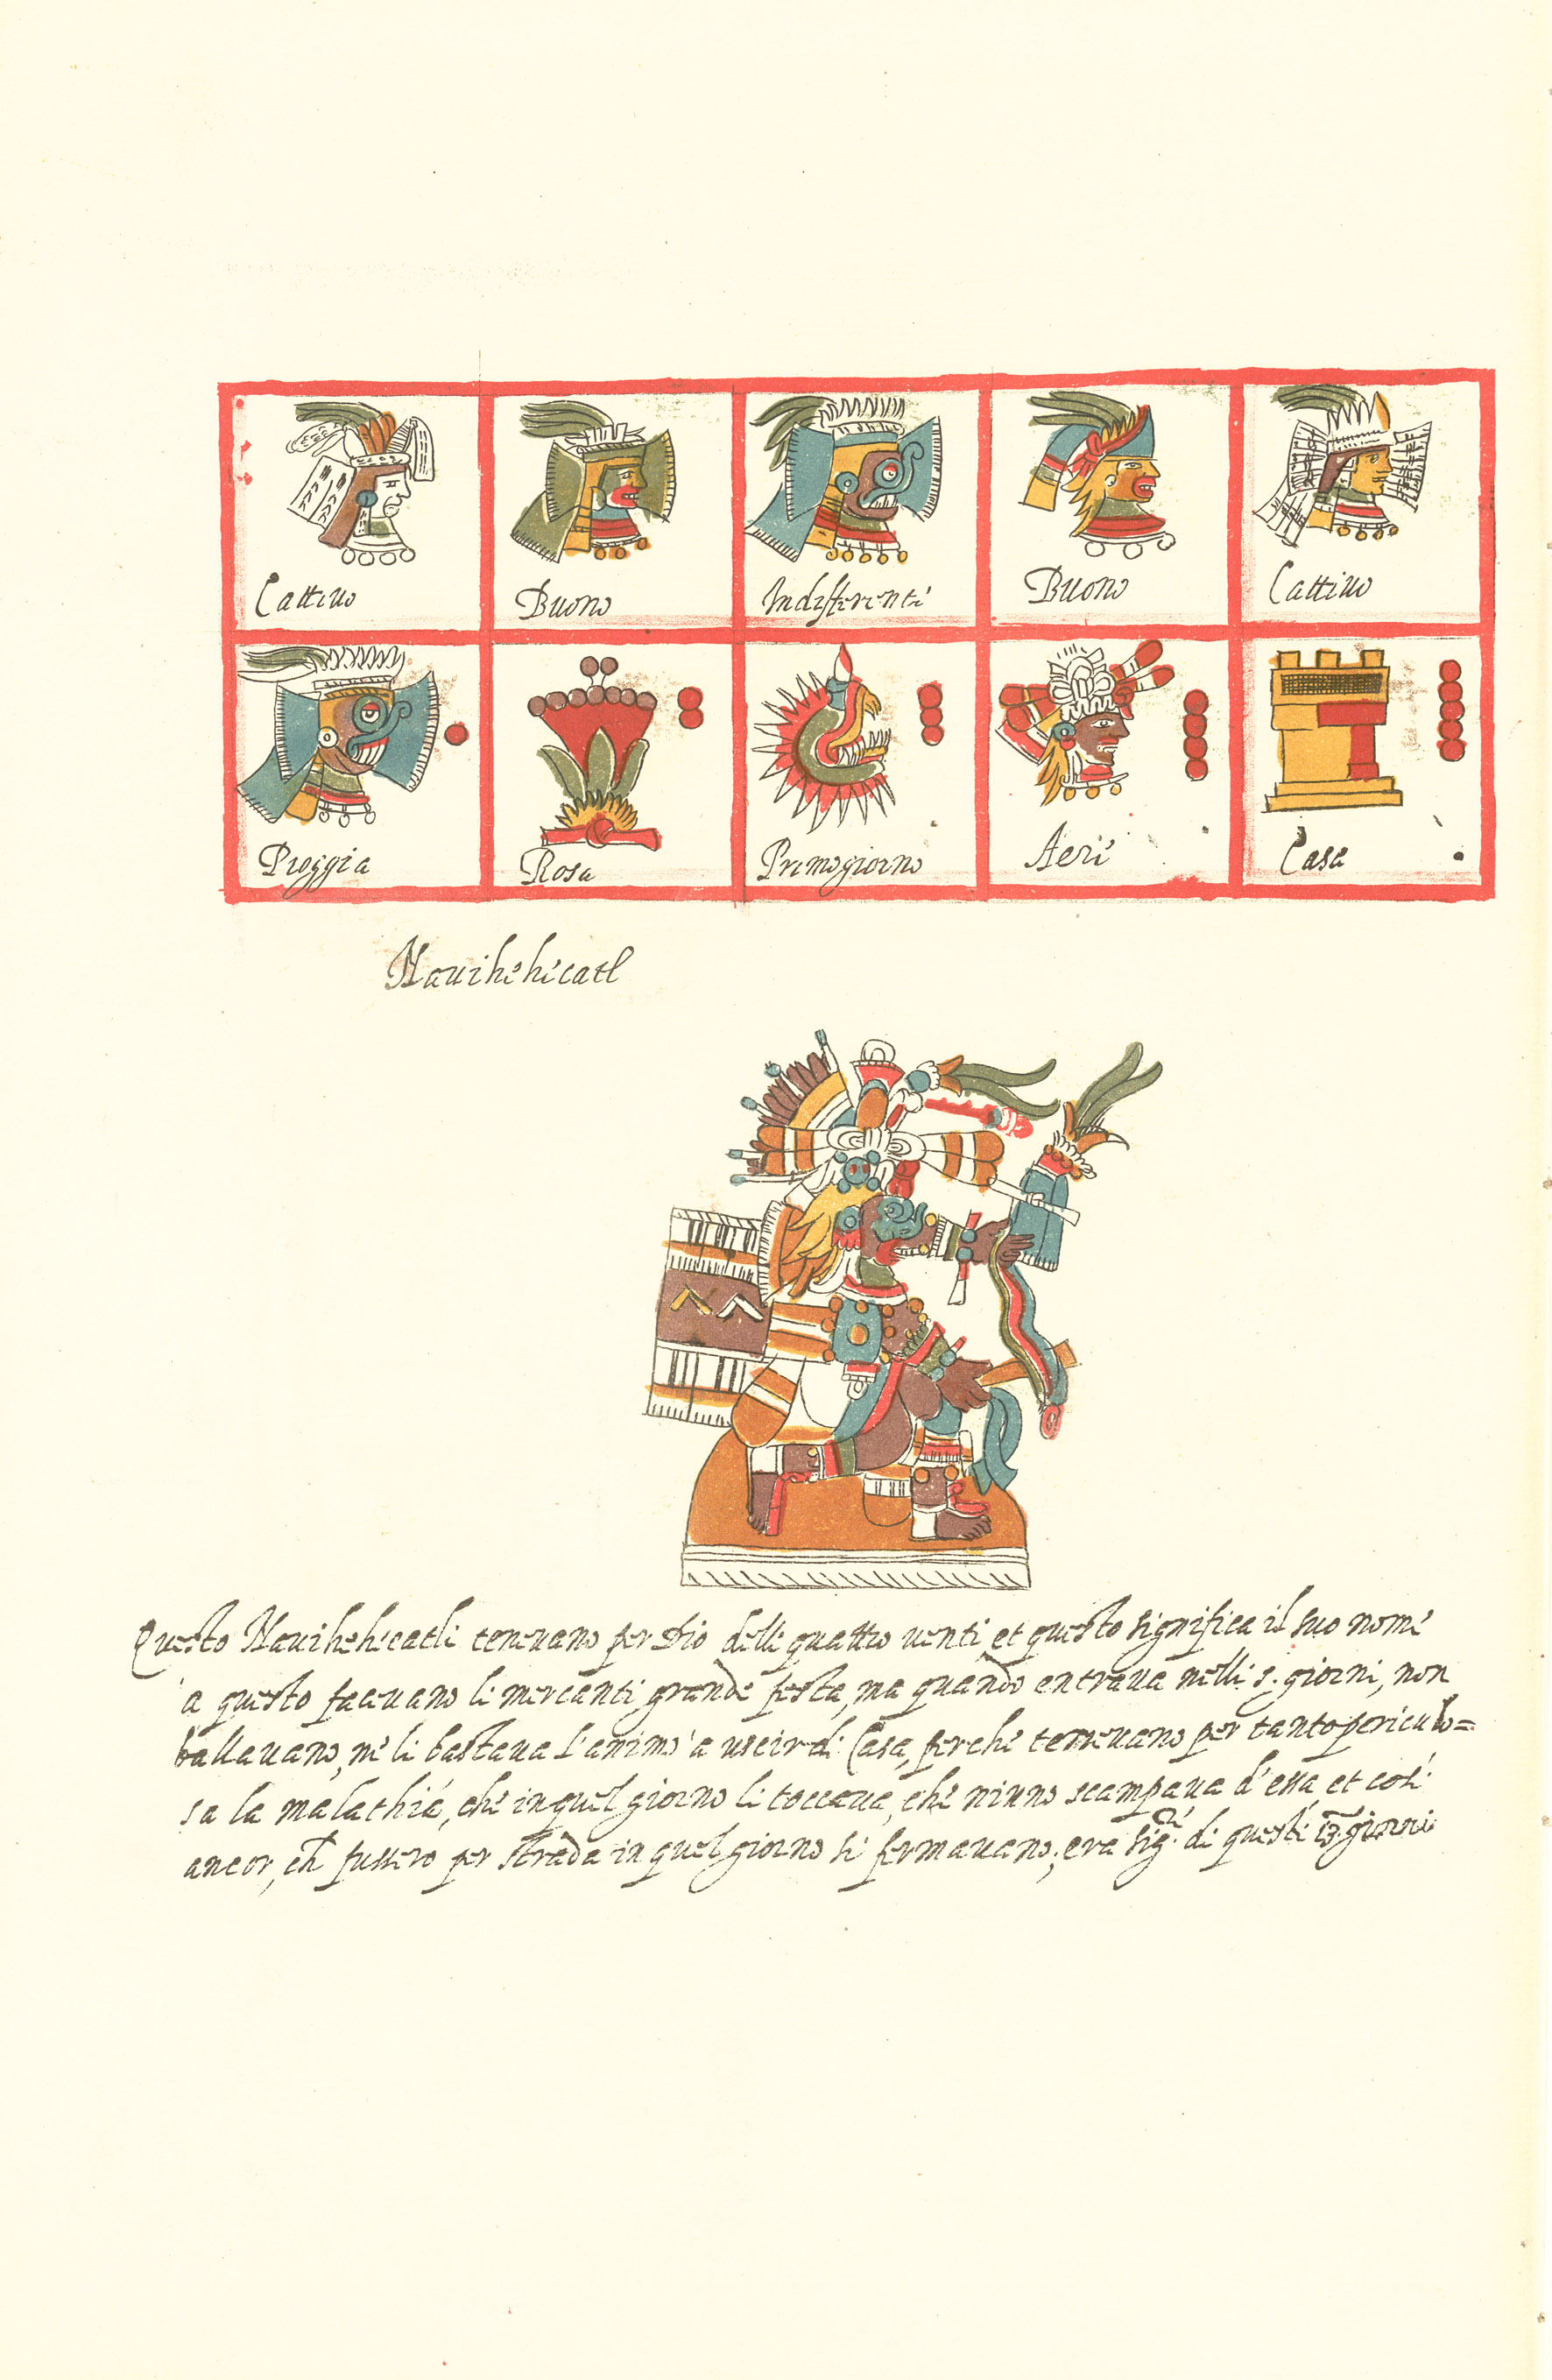 Cattiuo Buono Indifferenti Buono Cattiuo
Pioggia Rosa Primogiorno Aere Casa
Nauihehecatl
Questo Nauihehecatli teneuano per Dio delli quattro uenti, et questo significa il suo nome
a questo faceuano li mercanti grande festa, ma quando entraua nelli s. giorni, non
ballauano, ne li bastaua l'animo a uscir di Casa, perche teneuano per tanto periculo=
sa la malathia, che in quel giorno li toccaua, che niuno scampaua d'essa, et cosi
ancor, ch fussero per strada in quel giorno si fermauano; era sig.re di questi 13. giorni